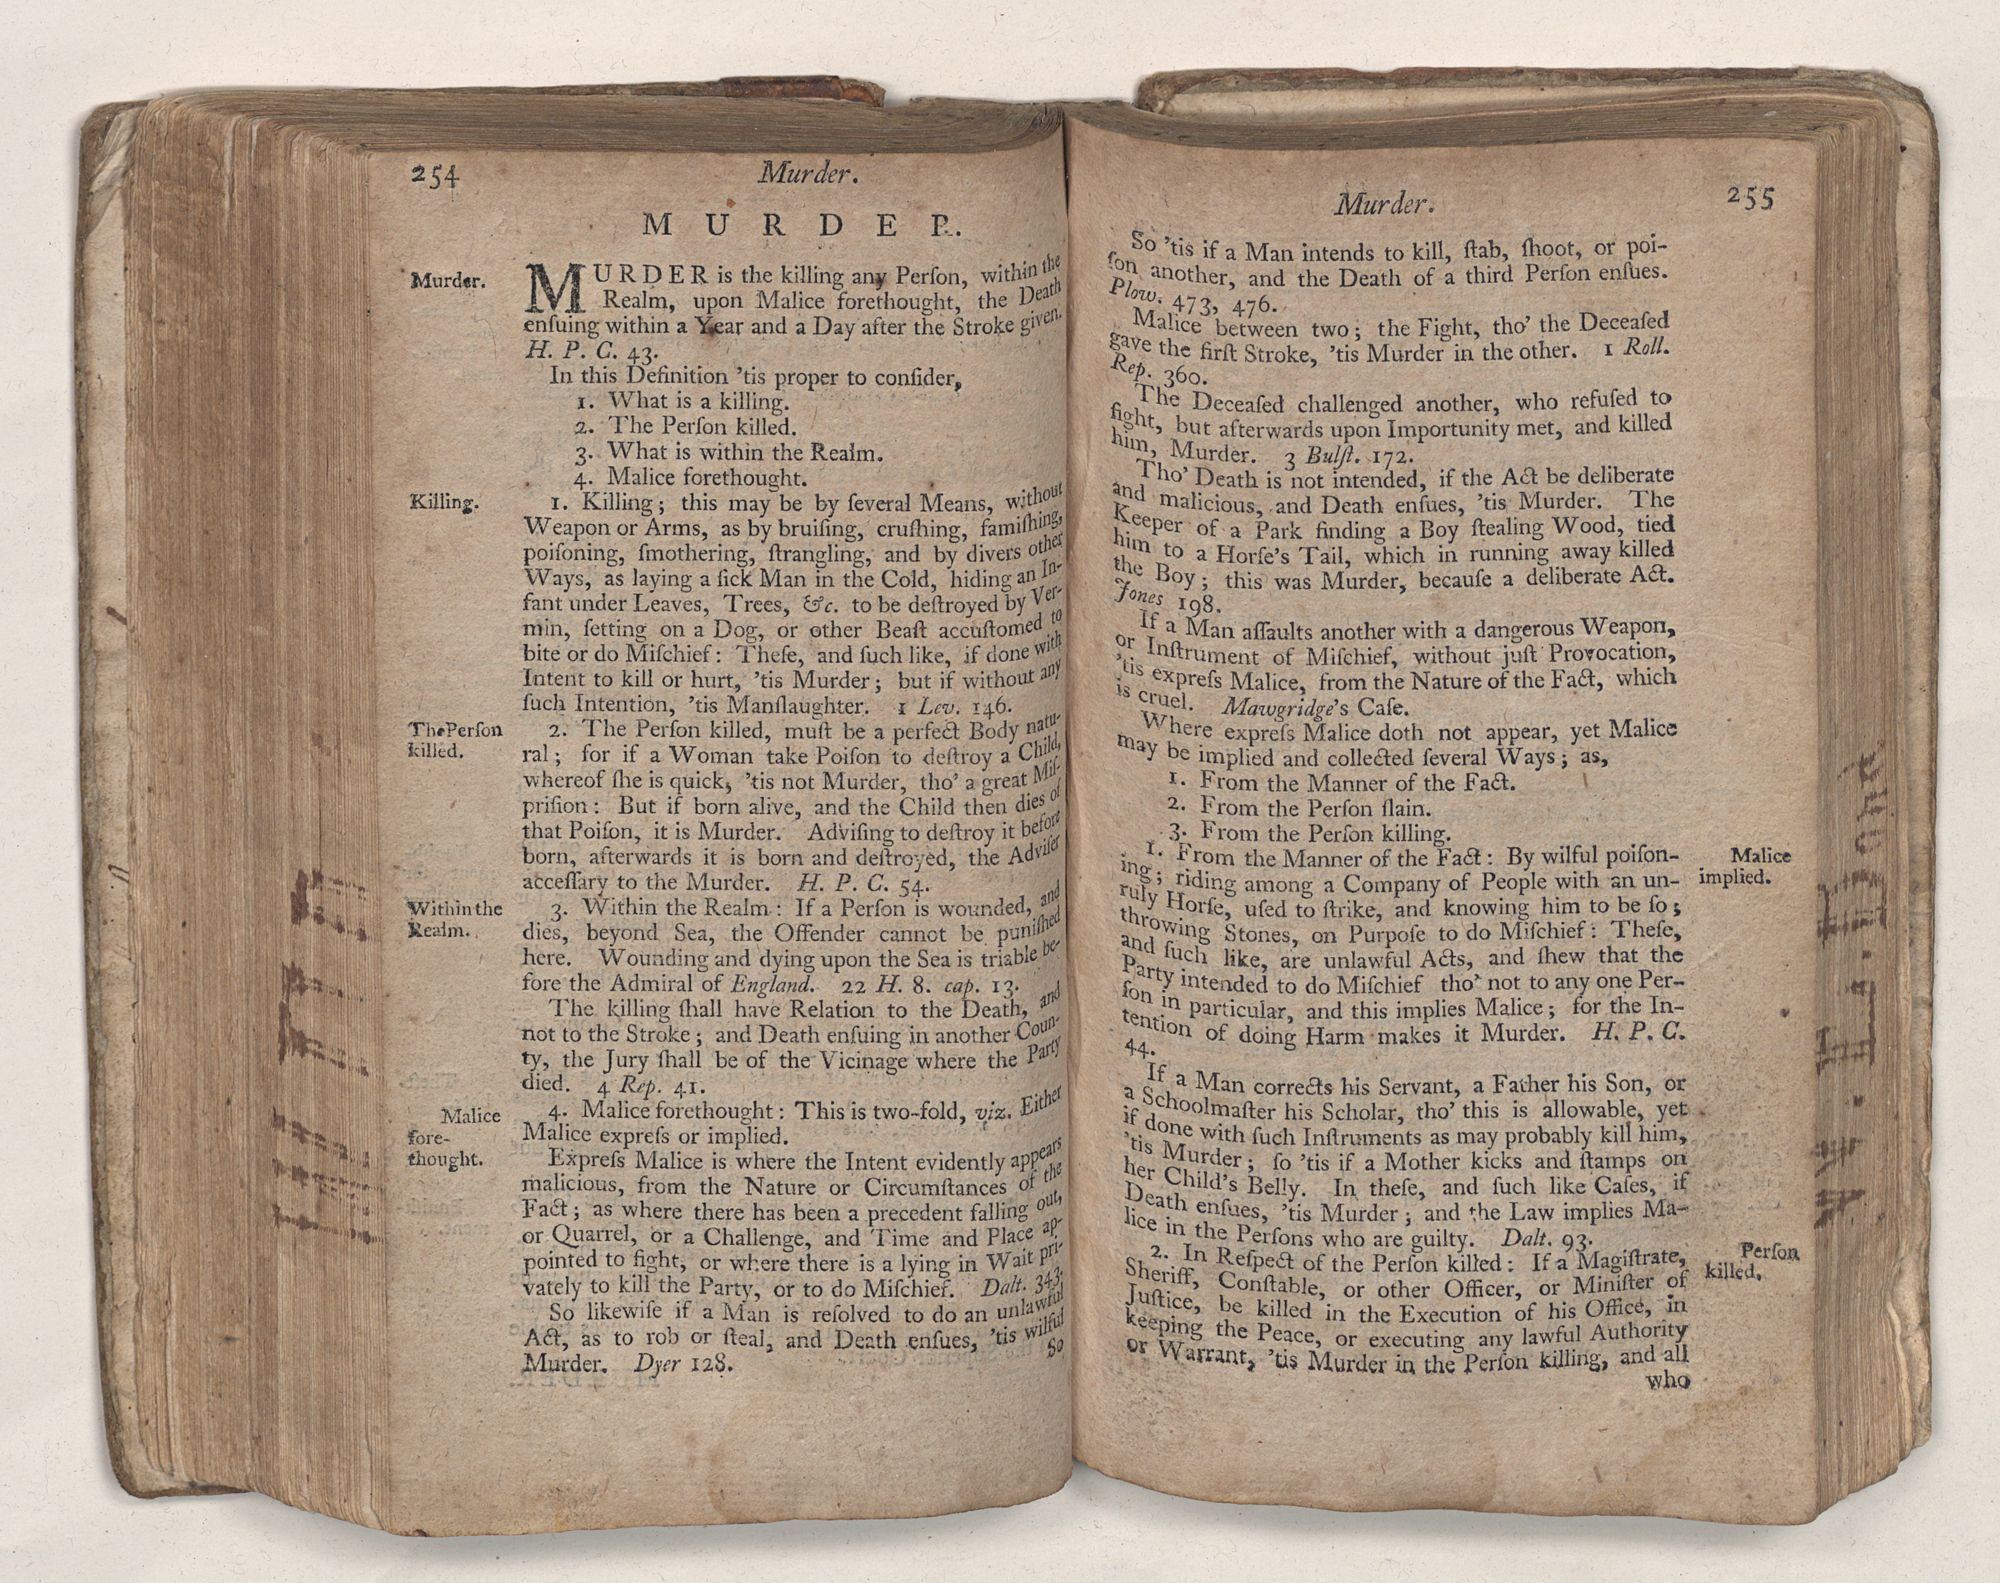 254 Murder.
MURDER.
Murder.
MURDER is the killing any Perſon, within the
Realm, upon Malice forethought, the Death
enſuing within a Year and a Day after the Stroke given.
H. P. C. 43.
In this Definition 'tis proper to conſider,
1. What is a killing.
2. The Perſon killed.
3. What is within the Realm.
4. Malice forethought.
Killing.
1. Killing; this may be by ſeveral Means, without
Weapon or Arms, as by bruiſing, cruſhing, famiſhing,
poiſoning, ſmothering, ſtrangling, and by divers other
Ways, as laying a ſick Man in the Cold, hiding an In-
fant under Leaves, Trees, &c. to be deſtroyed by Ver-
min, ſetting on a Dog, or other Beaſt accuſtomed to
bite or do Miſchief: Theſe, and ſuch like, if done with
Intent to kill or hurt, 'tis Murder; but if without any
ſuch Intention, 'tis Manſlaughter. 1 Lev. 146.
The Perſon
killed.
2. The Perſon killed, muſt be a perfect Body natu-
ral; for if a Woman take Poiſon to deſtroy a Child,
whereof ſhe is quick, 'tis not Murder, tho' a great Miſ-
priſion: But if born alive, and the Child then dies of
that Poiſon, it is Murder. Adviſing to deſtroy it before
born, afterwards it is born and deſtroyed, the Adviſer
acceſſary to the Murder. H. P. C. 54.
Within the
Realm.
3. Within the Realm: If a Perſon is wounded, and
dies, beyond Sea, the Offender cannot be puniſhed
here. Wounding and dying upon the Sea is triable be-
fore the Admiral of England. 22 H. 8. cap. 13.
The killing ſhall have Relation to the Death, and
not to the Stroke; and Death enſuing in another Coun-
ty, the Jury ſhall be of the Vicinage where the Party
died. 4 Rep. 41.
Malice
fore-
thought.
4. Malice forethought: This is two-fold, viz. Either
Malice expreſs or implied.
Expreſs Malice is where the Intent evidently appears
malicious, from the Nature or Circumſtances of the
Fact; as where there has been a precedent falling out,
or Quarrel, or a Challenge, and Time and Place ap-
pointed to fight, or where there is a lying in Wait pri-
vately to kill the Party, or to do Miſchief. Dalt. 343.
So likewiſe if a Man is reſolved to do an unlawful
Act, as to rob or ſteal, and Death enſues, 'tis wilful
Murder. Dyer 128.
So
Murder. 255
So 'tis if a Man intends to kill, ſtab, ſhoot, or poi-
ſon another, and the Death of a third Perſon enſues.
Plow. 473, 476.
Malice between two; the Fight, tho' the Deceaſed
gave the firſt Stroke, 'tis Murder in the other. 1 Roll.
Rep. 360.
The Deceaſed challenged another, who refuſed to
fight, but afterwards upon Importunity met, and killed
him, Murder. 3 Bulſt. 172.
Tho' Death is not intended, if the Act be deliberate
and malicious, and Death enſues, 'tis Murder. The
Keeper of a Park finding a Boy ſtealing Wood, tied
him to a Horſe's Tail, which in running away killed
the Boy; this was Murder, becauſe a deliberate Act.
Jones 198.
If a Man aſſaults another with a dangerous Weapon,
or Inſtrument of Miſchief, without juſt Provocation,
'tis expreſs Malice, from the Nature of the Fact, which
is cruel. Mawgridge's Caſe.
Where expreſs Malice doth not appear, yet Malice
may be implied and collected ſeveral Ways; as,
1. From the Manner of the Fact.
2. From the Perſon ſlain.
3. From the Perſon killing.
1. From the Manner of the Fact: By wilful poiſon-
ing; riding among a Company of People with an un-
ruly Horſe, uſed to ſtrike, and knowing him to be ſo;
throwing Stones, on Purpoſe to do Miſchief: Theſe,
and ſuch like, are unlawful Acts, and ſhew that the
Party intended to do Miſchief tho' not to any one Per-
ſon in particular, and this implies Malice; for the In-
tention of doing Harm makes it Murder. H. P. C.
44.
Malice
implied.
If a Man corrects his Servant, a Father his Son, or
a Schoolmaſter his Scholar, tho' this is allowable, yet
if done with ſuch Inſtruments as may probably kill him,
'tis Murder; ſo 'tis if a Mother kicks and ſtamps on
her Child's Belly. In theſe, and ſuch like Caſes, if
Death enſues, 'tis Murder; and the Law implies Ma-
lice in the Perſons who are guilty. Dalt. 93.
2. In Reſpect of the Perſon killed: If a Magiſtrate,
Sheriff, Conſtable, or other Officer, or Miniſter of
Juſtice, be killed in the Execution of his Office, in
keeping the Peace, or executing any lawful Authority
or Warrant, 'tis Murder in the Perſon killing, and all
who
Perſon
killed.